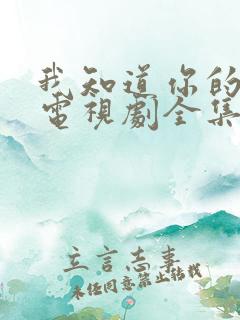 我知道你的
電視劇全集
立言志事
未经同意禁止转载